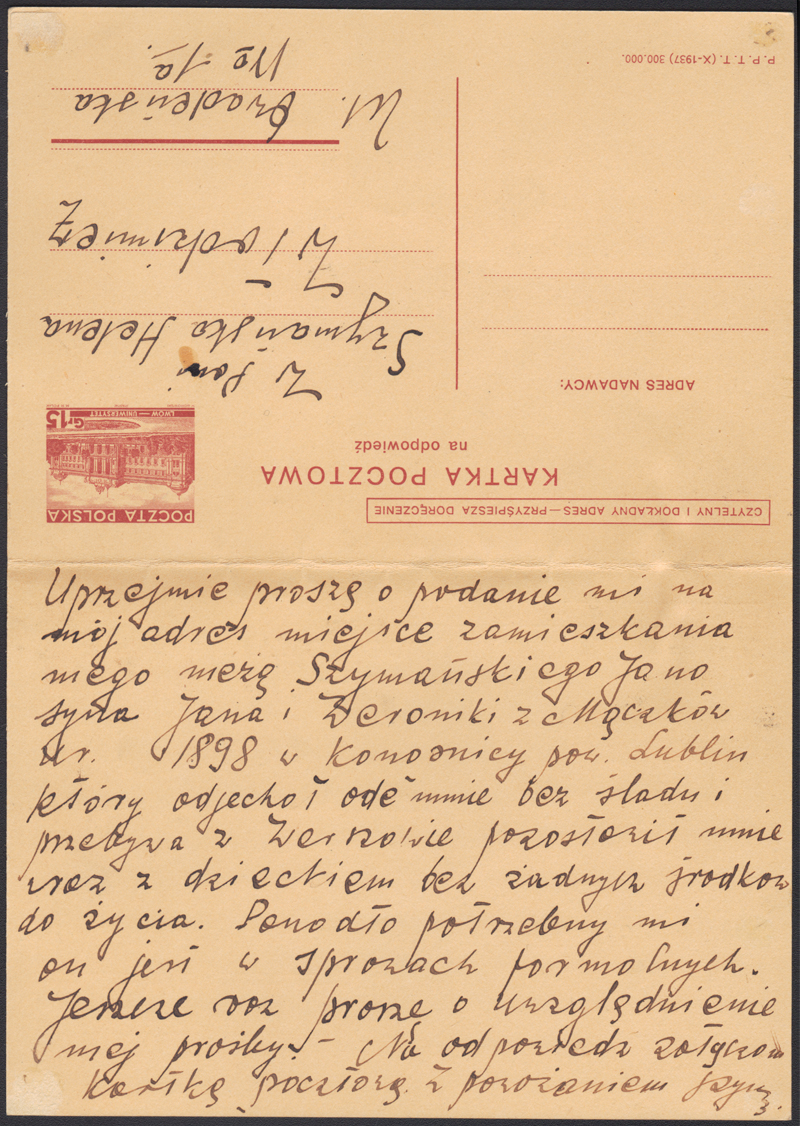 P. P. T. T. (X-1937) 300.000.
CZYTELNY I DOKŁADNY ADRES — PRZYŚPIESZA DORĘCZENIE
KARTKA POCZTOWA
na odpowiedź
POCZTA POLSKA
LWÓW — UNIWERSYTET
Gr 15
ADRES NADAWCY:
W Pani
Szymańska Helena
Włodzimierz
Ul.
No 1a.
Uprzejmie proszę o podanie mi na
mój adres miejsce zamieszkania
mego męża Szymańskiego Jana
syna Jana i Weroniki z Mączków
ur. 1898 w Konopnicy pow. Lublin
który odjechoł ode mnie bez śladu i
przebywa w pozostawił mnie
wraz z dzieckiem bez żadnych środków
do życia. Ponadto potrzebny mi
on jest w sprawach formalnych.
Jeszcze raz proszę o uwzględnienie
mej prośby. – Na odpowiedź załączam
kartkę pocztową. Z poważaniem